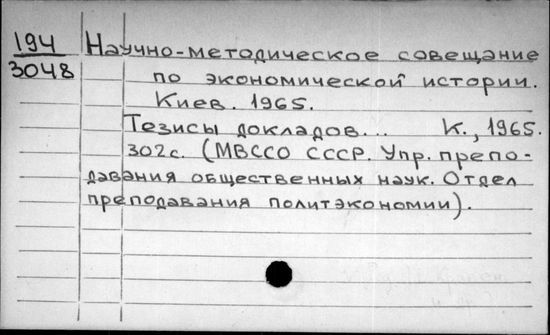 194
3048
Научно-методическое совещание
по экономической истории.
Киев. 1965.
Тезисы докладов... К., 1965.
302с. (МВССО СССР. Упр. препо-
давания общественных наук. Отдел
преподавания политэкономии).